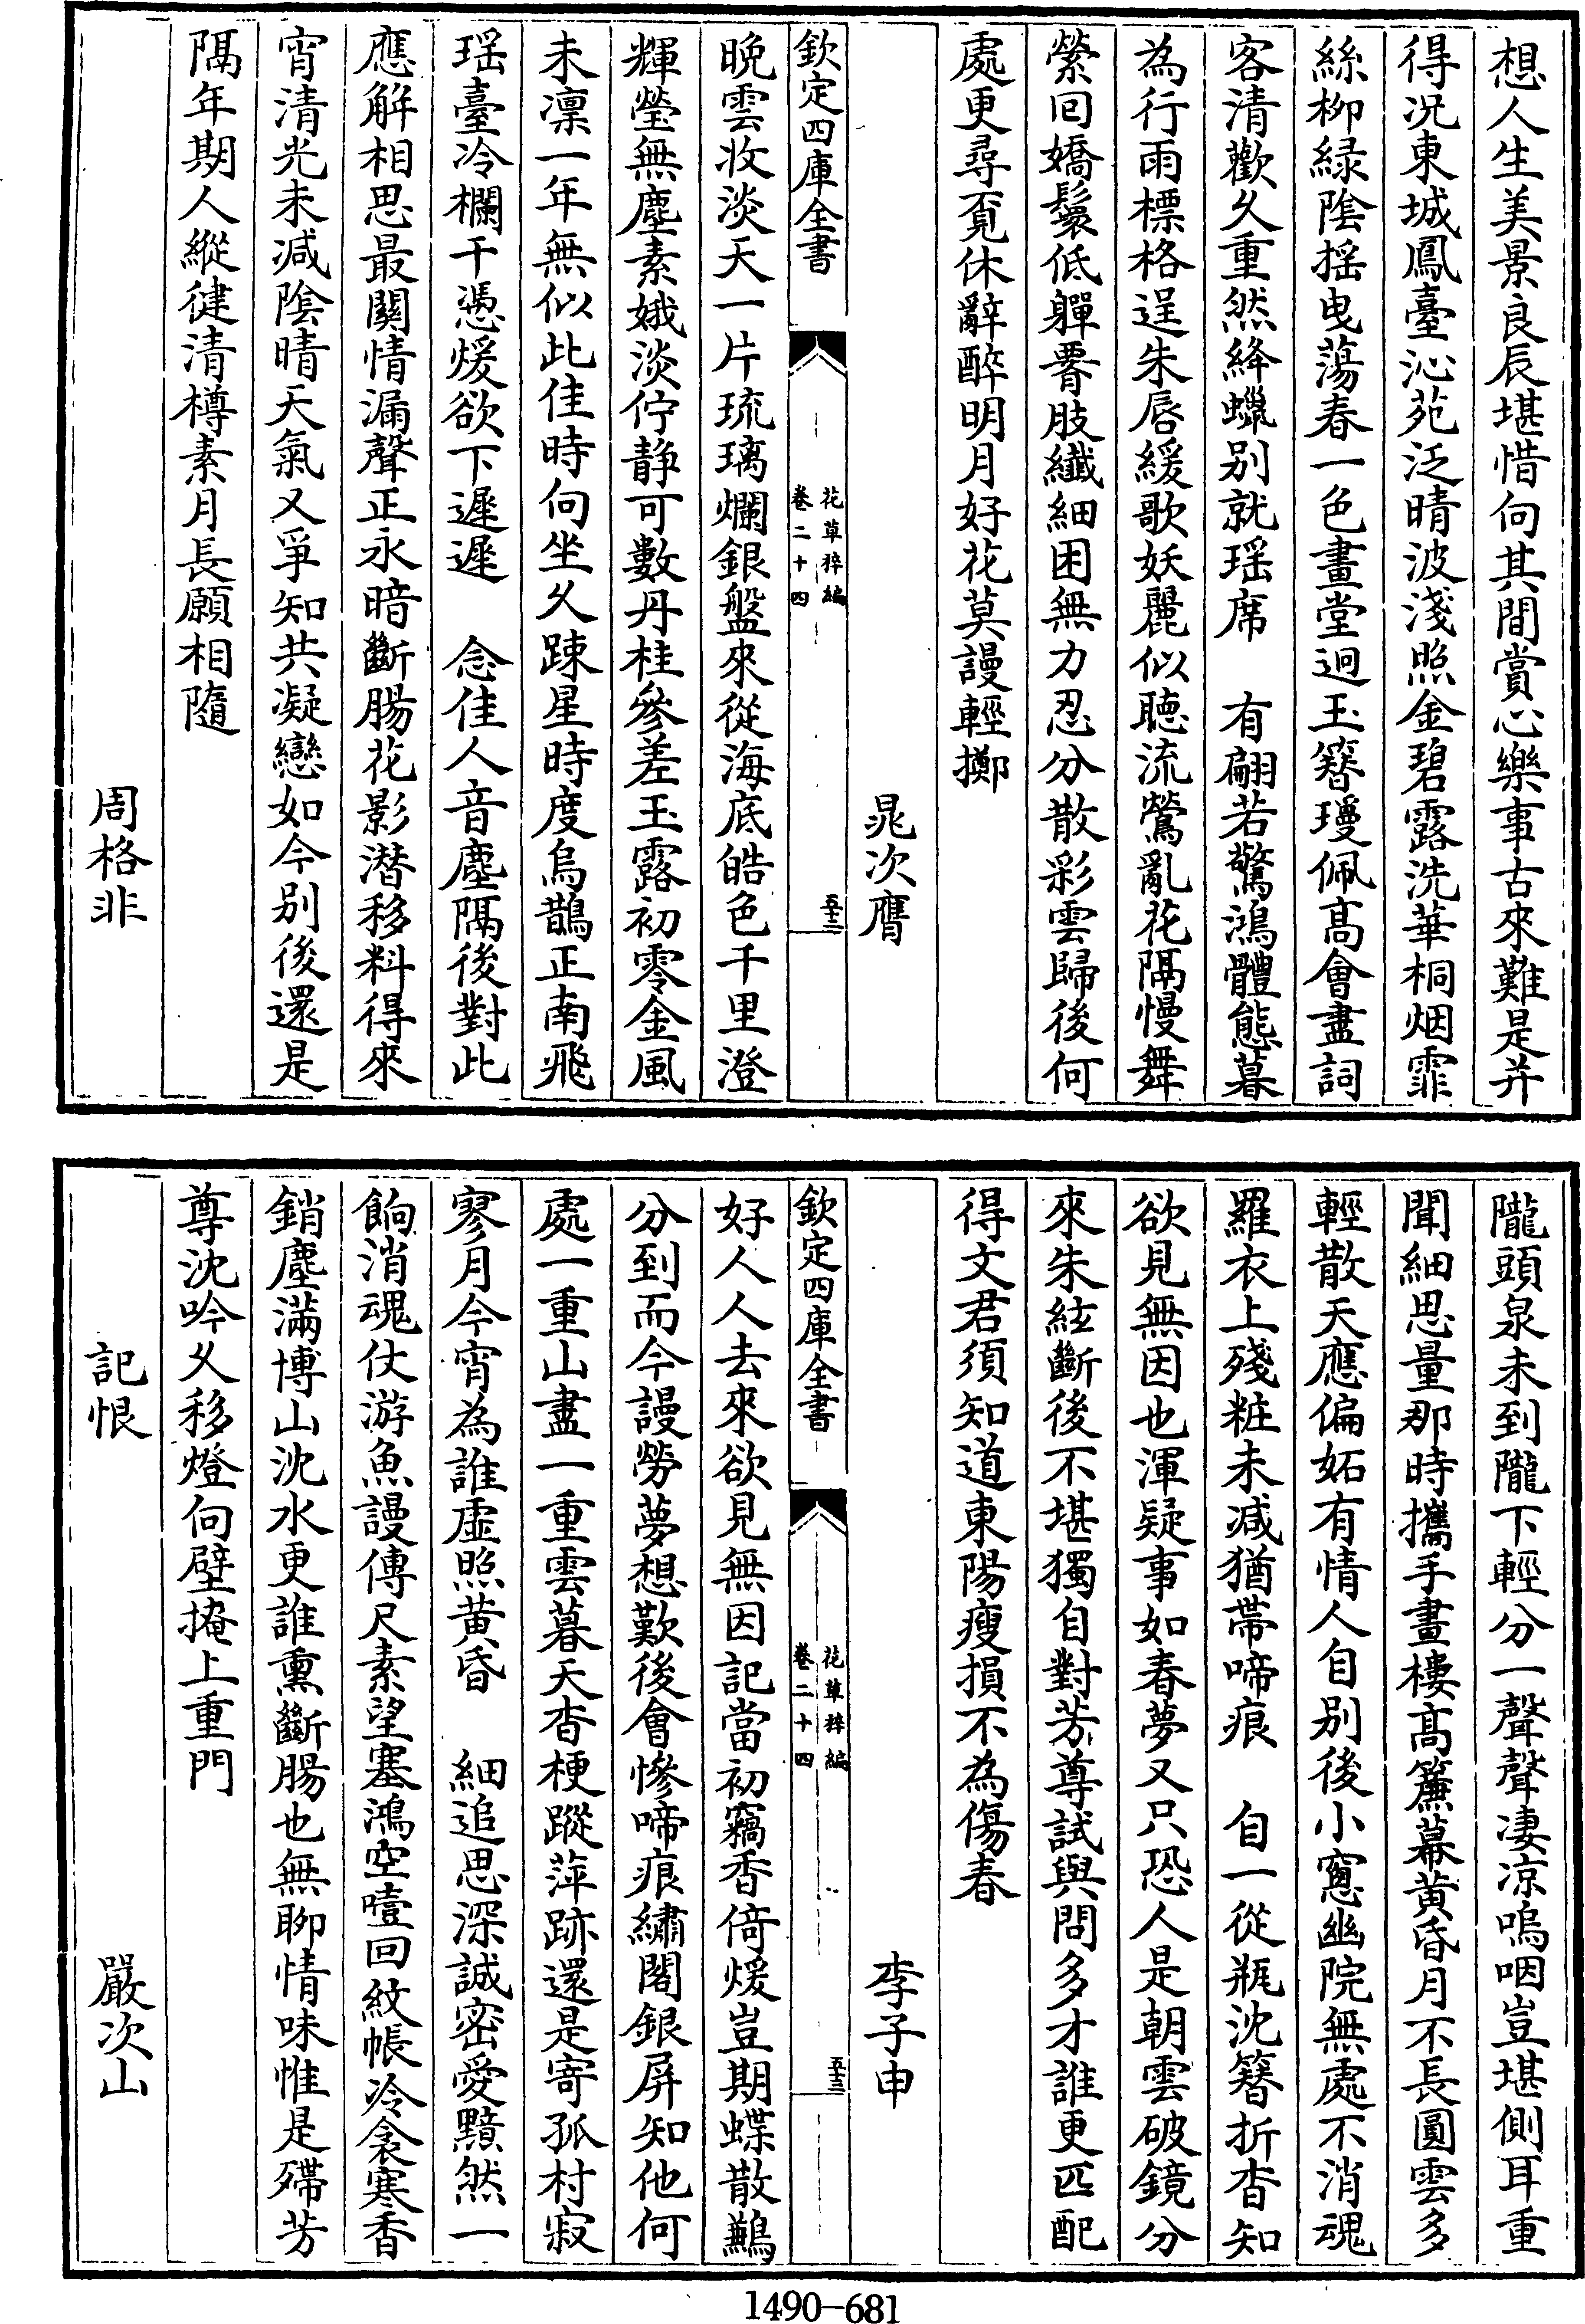 想人生美景良辰堪惜向其間賞心樂事古來難是并
得况東城鳳臺沁苑泛晴波淺照金碧露洗華桐烟霏
絲柳緑陰揺曳蕩春一色畫堂迥玉簪瓊佩髙會盡詞
客清歡久重然絳蠟别就瑶席　有翩若驚鴻體態暮
為行雨標格逞朱唇緩歌妖麗似聴流鶯亂花隔慢舞
縈回嬌鬟低軃腰肢纖細困無力忍分散彩雲歸後何
處更尋覓休辭醉明月好花莫謾輕擲
晁次膺
欽定四庫全書
花草稡編
卷二十四
五十二
晚雲收淡天一片琉璃爛銀盤來從海底皓色千里澄
輝瑩無塵素娥淡佇静可數丹桂參差玉露初零金風
未凛一年無似此佳時向坐久踈星時度烏鵲正南飛
瑶臺冷欄干憑煖欲下遲遲　念佳人音塵隔後對此
應解相思最關情漏聲正永暗斷腸花影潜移料得來
宵清光未减陰晴天氣又爭知共凝戀如今别後還是
隔年期人縱健清樽素月長願相隨
周格非
隴頭泉未到隴下輕分一聲聲凄凉嗚咽豈堪側耳重
聞細思量那時攜手畫樓髙簾幕黄昏月不長圓雲多
輕散天應偏妬有情人自别後小窻幽院無處不消魂
羅衣上殘粧未减猶帶啼痕　自一從瓶沈簪折杳知
欲見無因也渾疑事如春夢又只恐人是朝雲破鏡分
來朱絃斷後不堪獨自對芳尊試與問多才誰更匹配
得文君須知道東陽瘦損不為傷春
李子申
欽定四庫全書
花草稡編
卷二十四
五十三
好人人去來欲見無因記當初竊香倚煖豈期蝶散鶼
分到而今謾勞夢想歎後會慘啼痕繡閣銀屏知他何
處一重山盡一重雲暮天杳梗蹤萍跡還是寄孤村寂
寥月今宵為誰虚照黄昏　細追思深誠密愛黯然一
餉消魂仗游魚謾傳尺素望塞鴻空噎回紋帳冷衾寒香
銷塵滿博山沈水更誰熏斷腸也無聊情味惟是殢芳
尊沈吟久移燈向壁掩上重門
記恨　嚴次山
1490-681